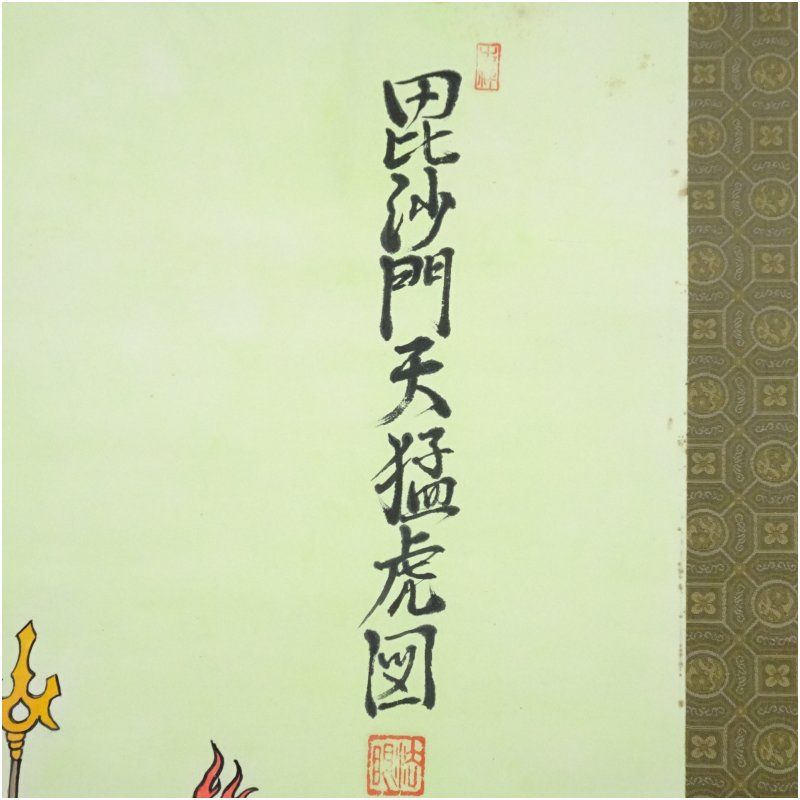 毘沙門天猛虎図